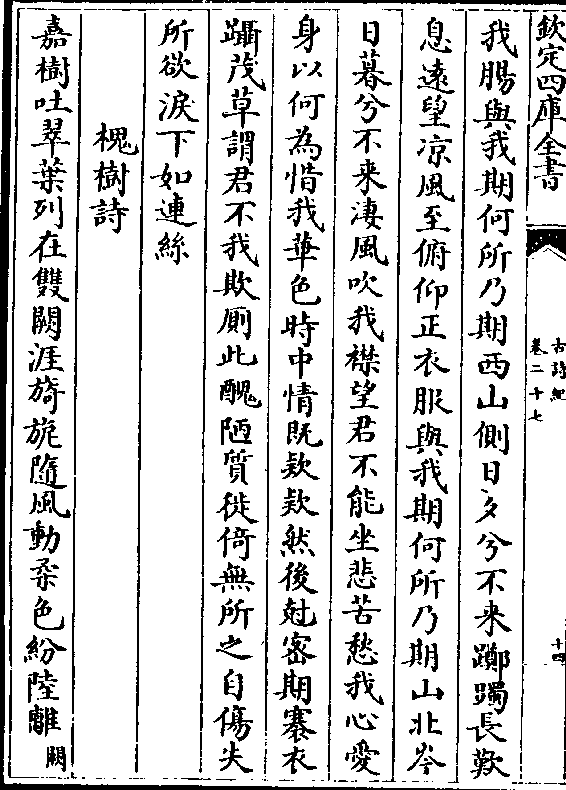 欽定四庫全書
古詩紀
卷二十七
十四
我腸與我期何所乃期西山側日夕兮不来躑躅長歎
息遠望凉風至俯仰正衣服與我期何所乃期山北岑
日暮兮不来淒風吹我襟望君不能坐悲苦愁我心愛
身以何為惜我華色時中情既欵欵然後尅密期褰衣
躡茂草謂君不我欺厠此醜陋質徙倚無所之自傷失
所欲淚下如連絲
槐樹詩
嘉樹吐翠葉列在雙闕涯旖旎隨風動柔色紛陸離闕